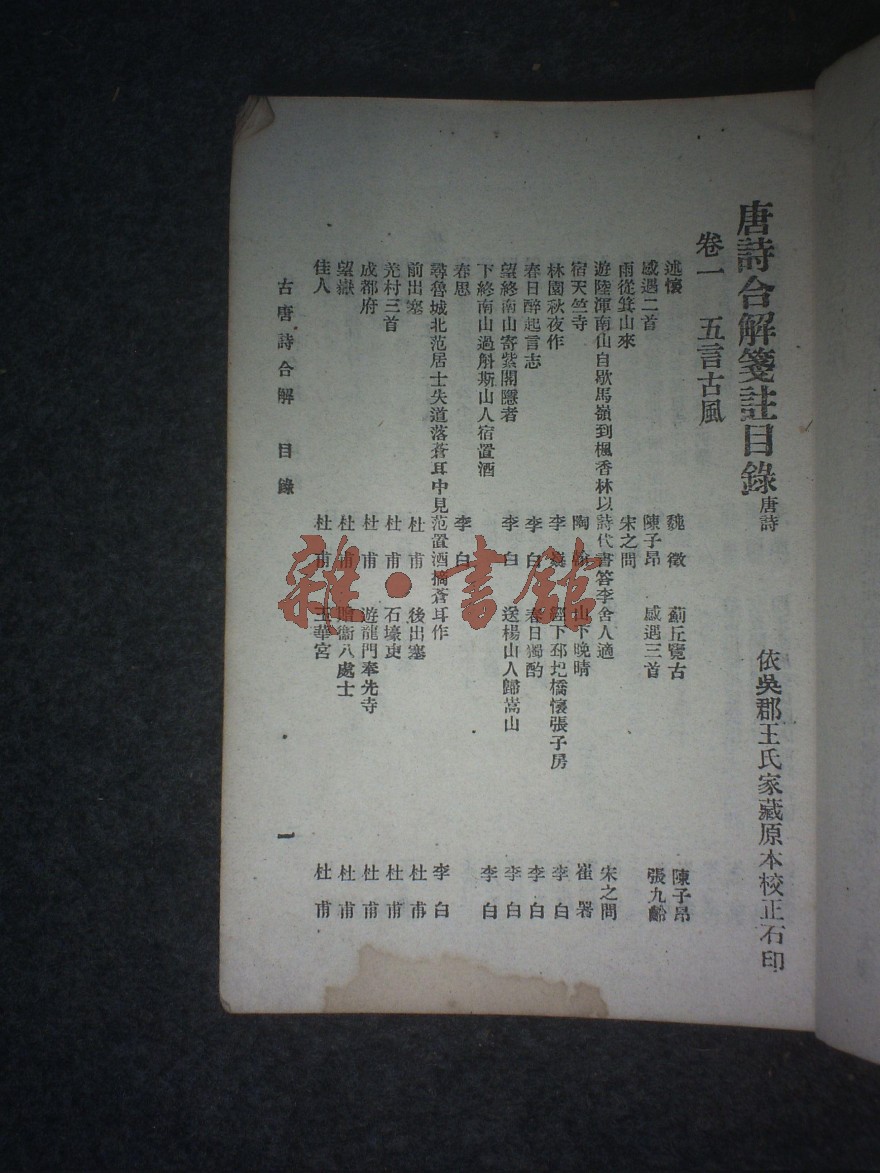 唐詩合解箋註目錄 唐詩
依吳郡王氏家藏原本校正石印
卷一 五言古風
述懷 魏徵 薊丘覽古 陳子昂
感遇二首 陳子昂 感遇三首 張九齡
雨從箕山來 宋之問
遊陸渾南山自歇馬嶺到楓香林以詩代書答李舍人適 宋之問
宿天竺寺 陶 山下晚晴 崔署
林園秋夜作 李 經下邳圯橋懷張子房 李白
春日醉起言志 李白 春日獨酌 李白
望終南山寄紫閣隱者 李白 送楊山人歸嵩山 李白
下終南山過斛斯山人宿置酒 李白
春思 李白
尋魯城北范居士失道落蒼耳中見范置酒摘蒼耳作 李白
前出塞 杜甫 後出塞 杜甫
羌村三首 杜甫 石壕吏 杜甫
成都府 杜甫 遊龍門奉先寺 杜甫
望嶽 杜甫 贈衞八處士 杜甫
佳人 杜甫 玉華宮 杜甫
古唐詩合解 目錄 一
雜·書館